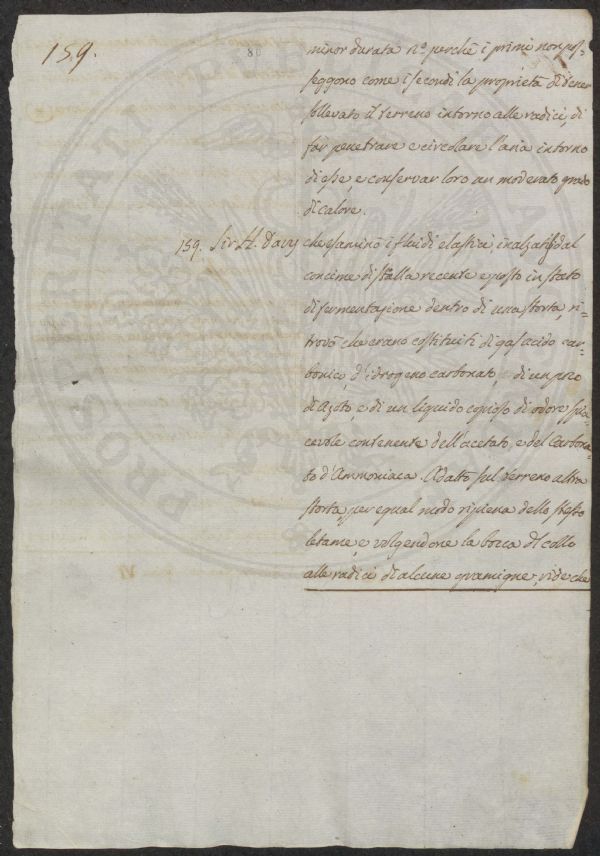 159.
86
minor durata nº perchè i primi non pos=
seggono come i secondi la proprietà di tener
sollevato il terreno intorno alle radici, di
far penetrare e circolare l'aria intorno
di esse, e conservar loro un moderato grado
di calore.
159. Sir H. Davy che esaminò i fluidi elastici, inalzatisi dal
concime di stalla recente e posto in stato
di fermentazione dentro di una storta, ri=
trovò che erano costituiti di gas acido car=
bonico, d'idrogeno carbonato, e di un poco
di Azoto, e di un liquido copioso di odore spia=
cevole contenente dell'acetato, e del Carbona=
to d'Ammoniaca. Adattò sul terreno altra
storta, per egual modo ripiena dello stesso
letame, e volgendone la bocca di collo
alle radici di alcune gramigne, vide che
PROSPERITATI